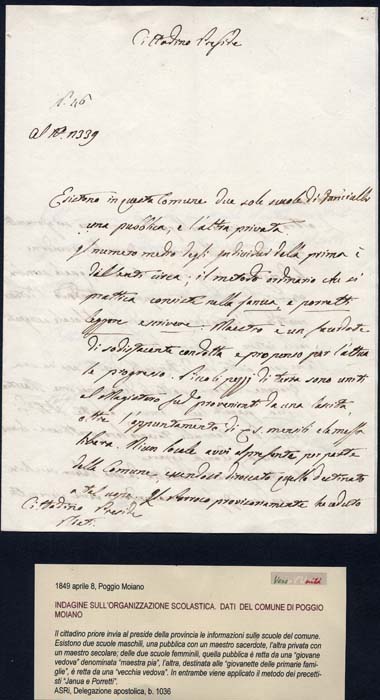 Cittadino Preside
N. 46
Al N. 11339
Esistono in questa Comune due sole scuole di
una pubblica, e l'altra privata.
Il numero medio degli individui della prima è
di venti circa; il metodo ordinario che si
prattica consiste nella Janua e porretti
leggere e scrivere. Maestro è un sacerdote
di sodisfacente condotta e propenso per l'attua
le progresso. Piccoli pezzi di terra sono uniti
al Magistero sud. provenienti da una
oltre l'appuntamento di mensili e la messa
libera. Niun locale avvi al presente per parte
della Comune, essendosi quello destinato
a tal uopo. Il Parroco provisoriamente ha ceduto
Cittadino Preside
1849 aprile 8, Poggio Moiano
INDAGINE SULL'ORGANIZZAZIONE SCOLASTICA. DATI DEL COMUNE DI POGGIO
MOIANO
Il cittadino priore invia al preside della provincia le informazioni sulle scuole del comune.
Esistono due scuole maschili, una pubblica con un maestro sacerdote, l'altra privata con
un maestro secolare; delle due scuole femminili, quella pubblica è retta da una "giovane
vedova" denominata "maestra pia", l'altra, destinata alle "giovanette delle primarie fami-
glie", è retta da una "vecchia vedova". In entrambe viene applicato il metodo dei precetti-
sti "Janua e Porretti".
ASRi, Delegazione apostolica, b. 1036